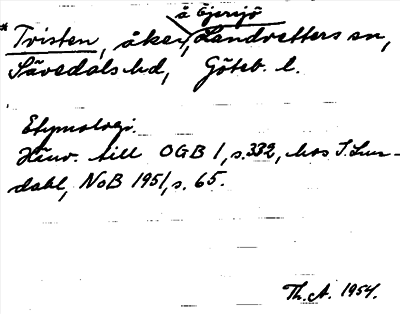 å Öjersjö
*Tvisten, åker, Landvetters sn,
Sävedals hd, Göteb. l.
Etymologi.
Hänv. till OGB 1, s. 332, hos I. Lun-
dahl, NoB 1951, s. 65.
Th. A. 1954.